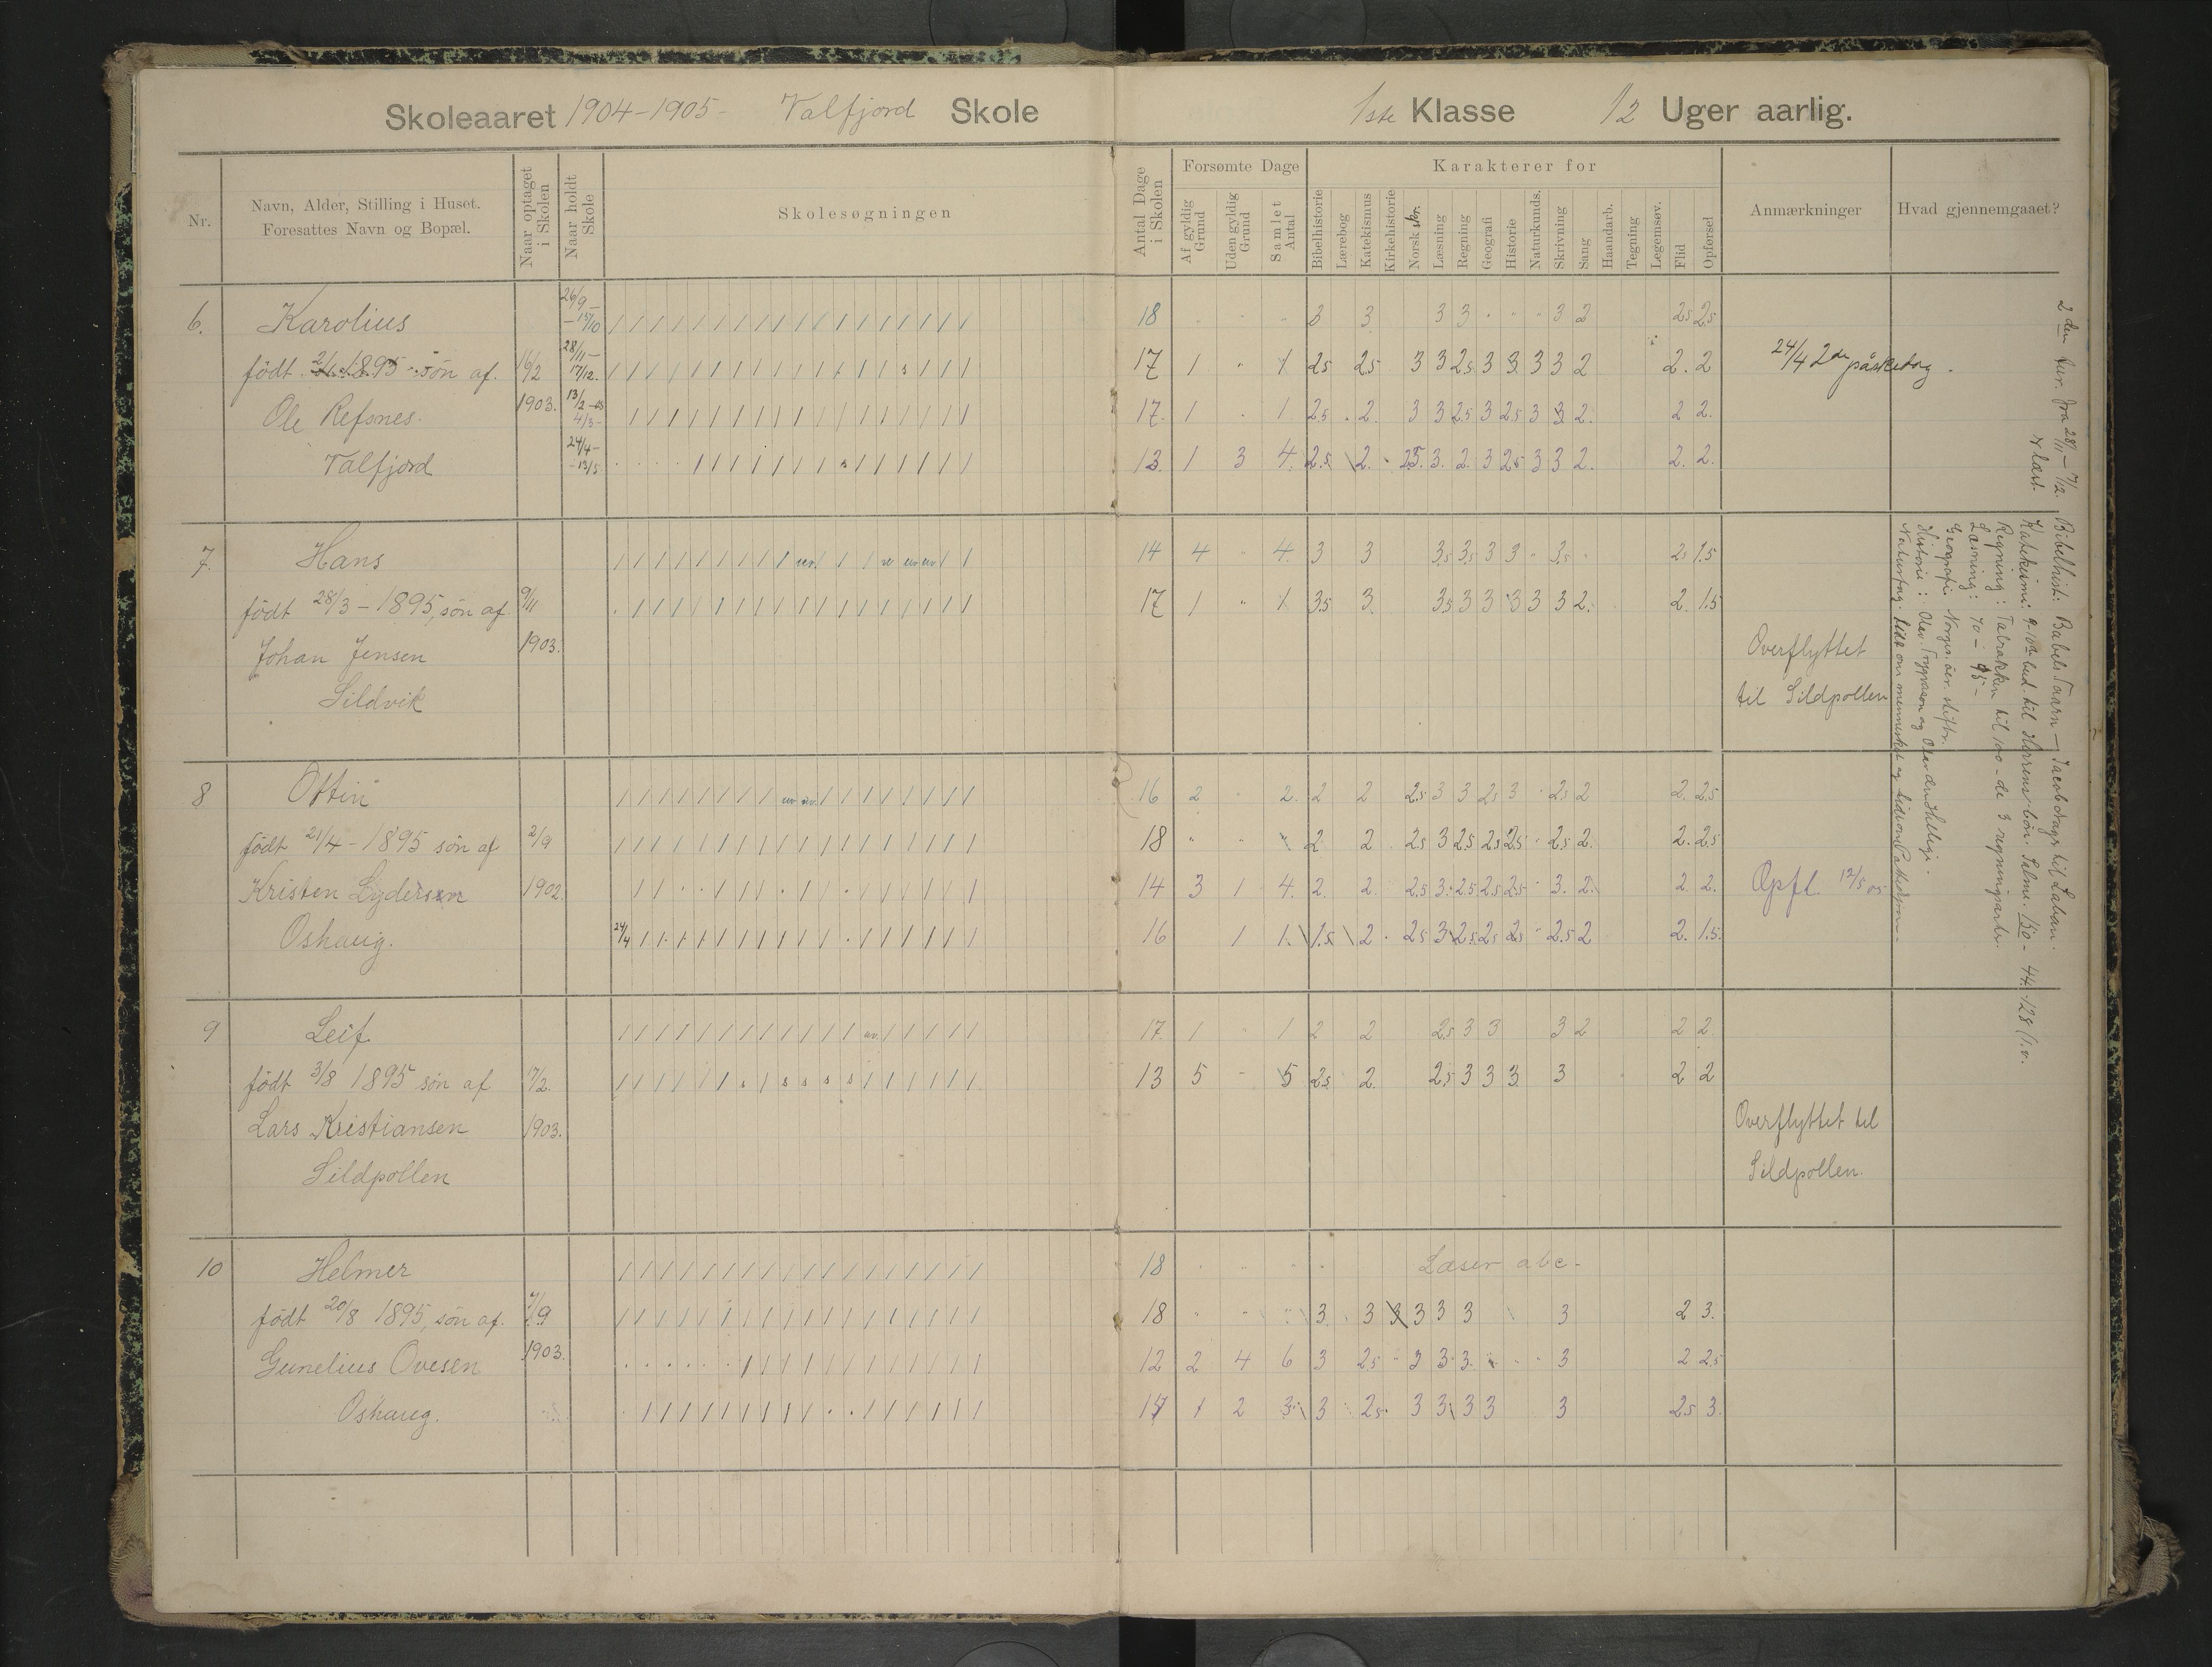 Skoleaaret 1904-1905- Valfjord Skole
1ste Klasse 12 Uger aarlig.
Nr.
Navn, Alder, Stilling i Huset.
Foresattes Navn og Bopæl.
Naar optaget i Skolen
Naar holdt Skole
Skolesøgningen
Antal Dage i Skolen
Forsømte Dage
Af gyldig Grund
Uden gyldig Grund
Samlet Antal
Karakterer for
Bibelhistorie
Lærebog
Katekismus
Kirkehistorie
Norsk skr.
Læsning
Regning
Geografi
Historie
Naturkunds.
Skrivning
Sang
Haandarb.
Tegning
Legemsøv.
Flid
Opførsel
Anmærkninger
Hvad gjennemgaaet?
6. Karolius 26/9- -15/10 18 3 3 3 3 3 2 2.5 2.5
født 1895 søn af. 16/2 28/11- 17/12. 17 1 " 1 2.5 2.5 3 3 2.5 3 3 3 3 2 2. 2 24/4 2den påskedag.
Ole Refsnes. 1903. 13/2- 4/3- 17. 1 . 1 2.5 2. 3 3 2.5 3 2.5 3 3 2. 2 2.
Valfjord 24/4- -13/5 13. 1 3 4. 2.5 2. 2.5. 3. 2. 3 2.5 3 3 2. 2. 2.
7. Hans 14 4 " 4. 3 3 3.5 3.5 3 3 " 3.5 2.5 1.5
født 28/3-1895, søn af 9/11 17 1 " 1 3.5 3. 3.5 3 3 3 3 3 2. 2. 1.5
Johan Jensen 1903. Overflyttet
Sildvik til Sildpollen
8 Ottin 16 2 2. 2 2 2.5 3 3 2.5 3 2.5 2 2. 2.5
født 21/4-1895 søn af 2/9 18 " " 2 2 2.5 3 2.5 2.5 2.5 2.5 2. 2. 2.5
Kristen Lydersen 1902. 14 3 1 4. 2. 2. 2.5 3. 2.5 2.5 2.5 3. 2. 2. 2. Opfl. 12/5 05
Oshaug. 24/4 16 1 1. 1.5 2. 2.5 3 2.5 2.5 2.5 2.5 2 2. 1.5.
9 Leif 17. 1 " 1 2 2 2.5 3 3 3 2 2 2.
født 3/8 1895 søn af 7/2. 13 5 - 5 2.5 2. 2.5 3 3 3. 3 2 2
Lars Kristiansen 1903. Overflyttet til
Sildpollen Sildpollen.
10 Helmer 18 Læser abc-
født 20/8 1895, søn af. 7/9 18 3. 3 3 3 3 3 3 2 3.
Gunelius Ovesen 1903. 12 2 4 6 3 2.5 3 3. 3. 3 2 2.5
Oshaug. 1 2 3. 3 2.5. 3 3 3 3 3 2.5 3.
2den tur. fra 28/11-17/12.
læst.
Bibelhist: Babels Taarn - Jacob drager til Laban.
Katekismi: 9-10de bud. til Herrens bøn. Salme. 150- 44. 128 l.v.
Regning: Tabrækken til 100-de 3 regningsarter.
Læsning: 70-95-
Geografi: Norges stifter.
Historie: Olav Trygvason og Olav den hellige.
Naturfag. lidt om mennesket og